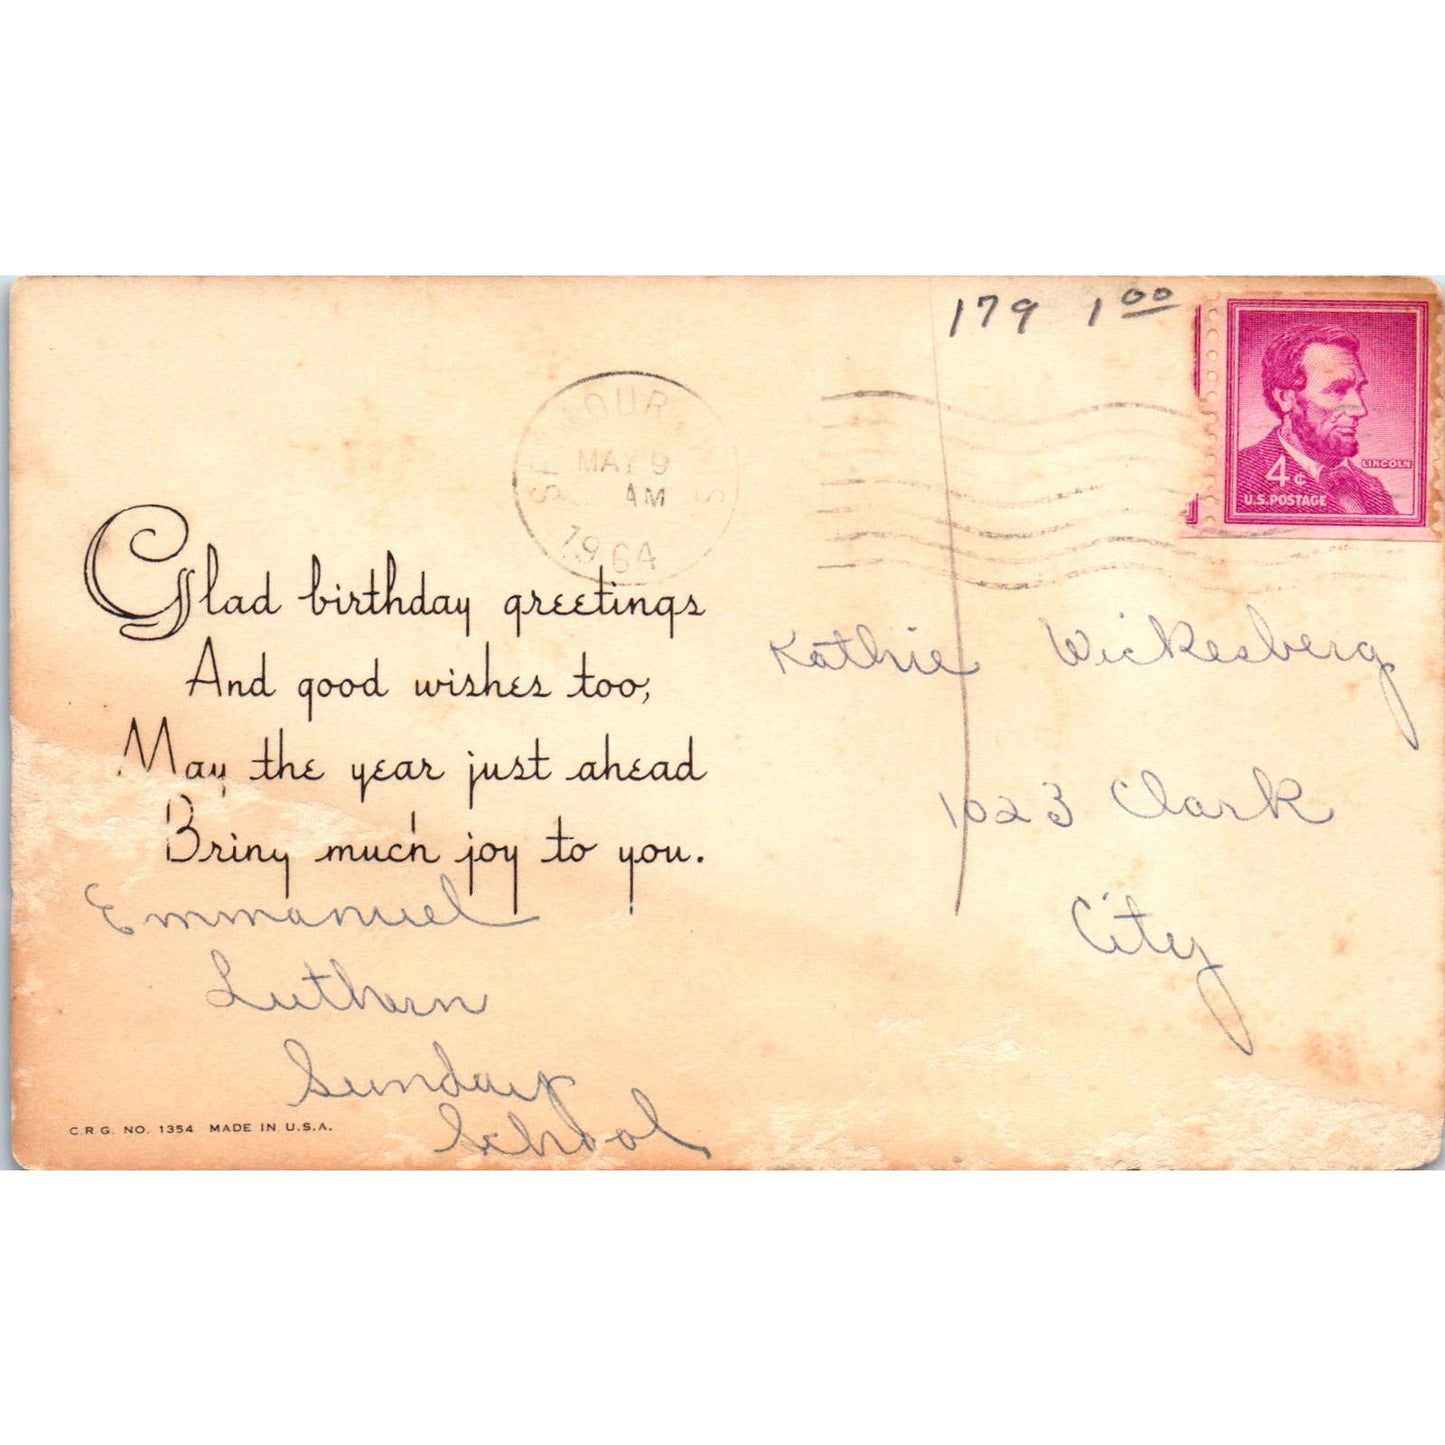 179 1⁰⁰
SEYMOUR WIS
MAY 9
AM
1964
LINCOLN
4¢
U.S. POSTAGE
Glad birthday greetings
And good wishes too,
May the year just ahead
Bring much joy to you.
Emmanuel
Luthern
Sunday
School
C.R.G. NO. 1354 MADE IN U.S.A.
Kathie Wickesberg
1023 Clark
City